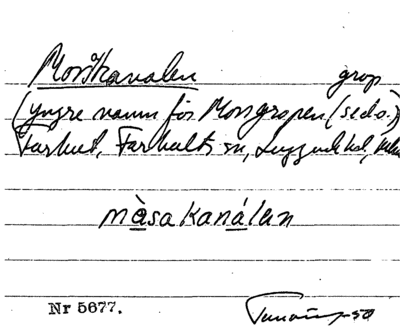 Morskanalen grop
(yngre namn för Morsgropen (se d.o.)
Farhult, Farhults sn, Luggude hd,
màsakanálen
Nr 5677. -50